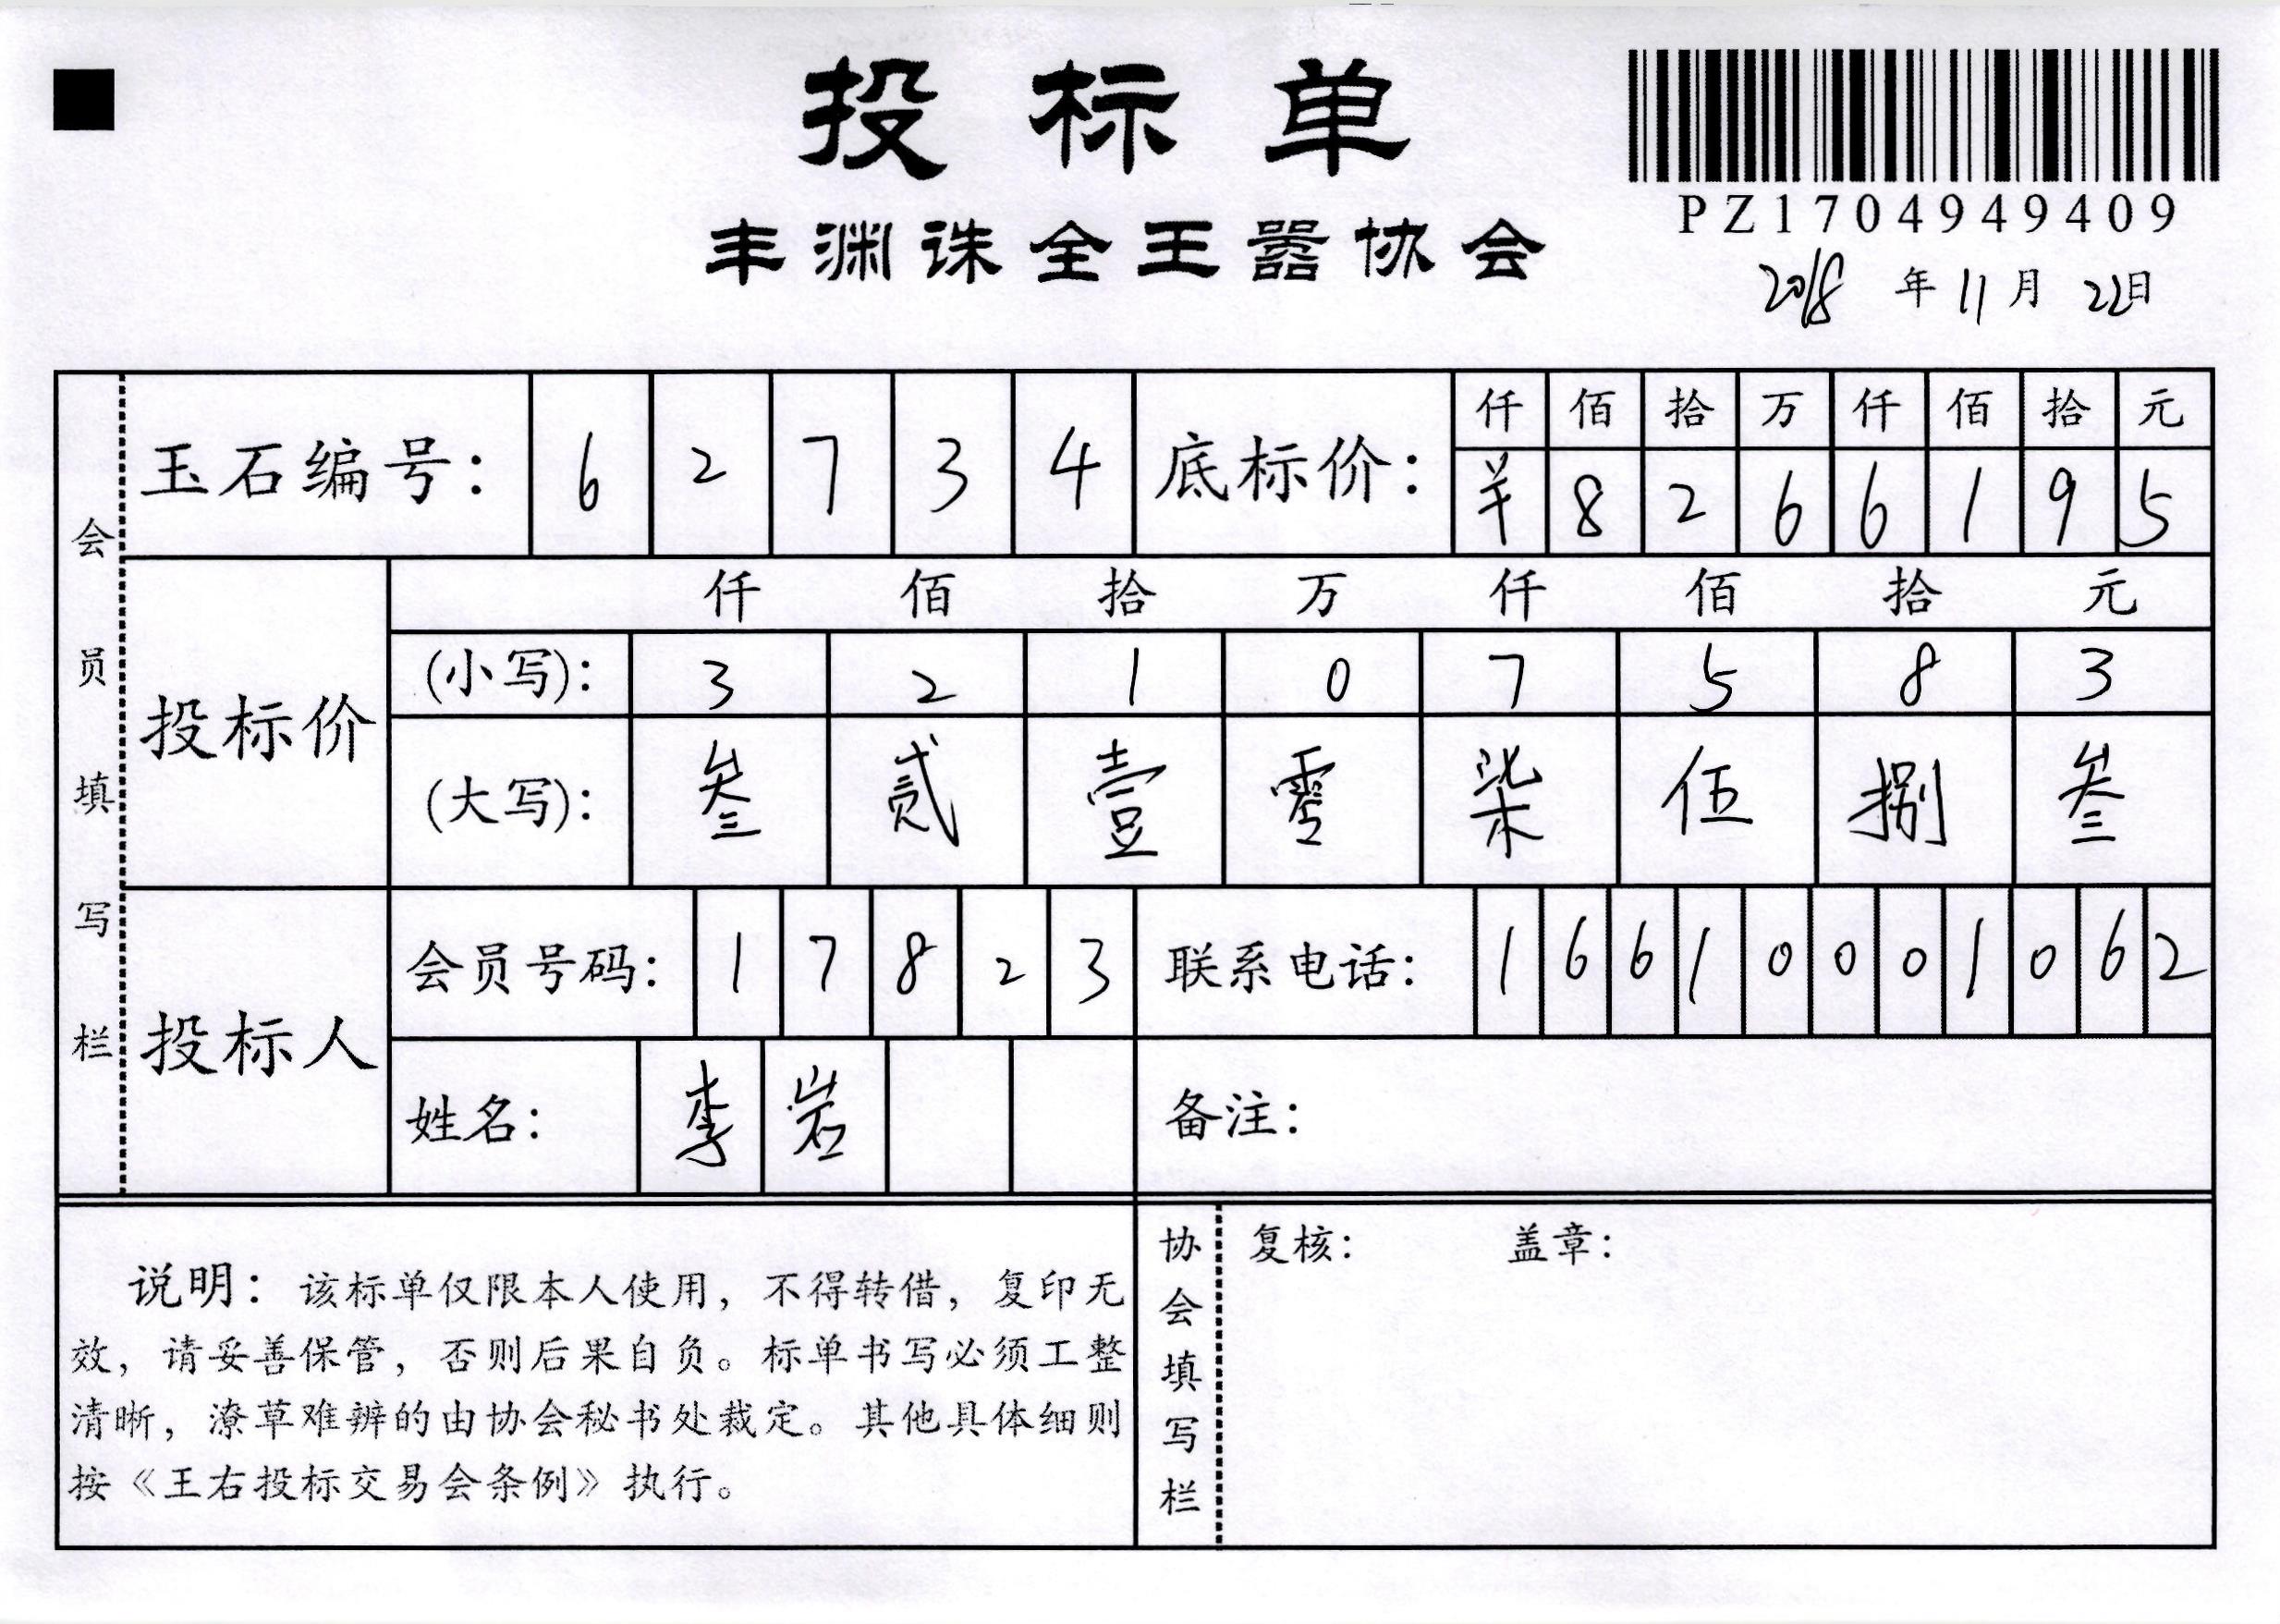 投标单
PZ1704949409
丰渊诛全王嚣协会
2018年11月22日
会员填写栏
玉石编号: 6 2 7 3 4
底标价:
仟 佰 拾 万 仟 佰 拾 元
¥ 8 2 6 6 1 9 5
投标价
仟 佰 拾 万 仟 佰 拾 元
(小写): 3 2 1 0 7 5 8 3
(大写): 叁 贰 壹 零 柒 伍 捌 叁
投标人
会员号码: 1 7 8 2 3
联系电话: 1 6 6 1 0 0 0 1 0 6 2
姓名: 李岩
备注:
说明: 该标单仅限本人使用, 不得转借, 复印无
效, 请妥善保管, 否则后果自负。标单书写必须工整
清晰, 潦草难辨的由协会秘书处裁定。其他具体细则
按《王右投标交易会条例》执行。
协会填写栏
复核: 盖章: